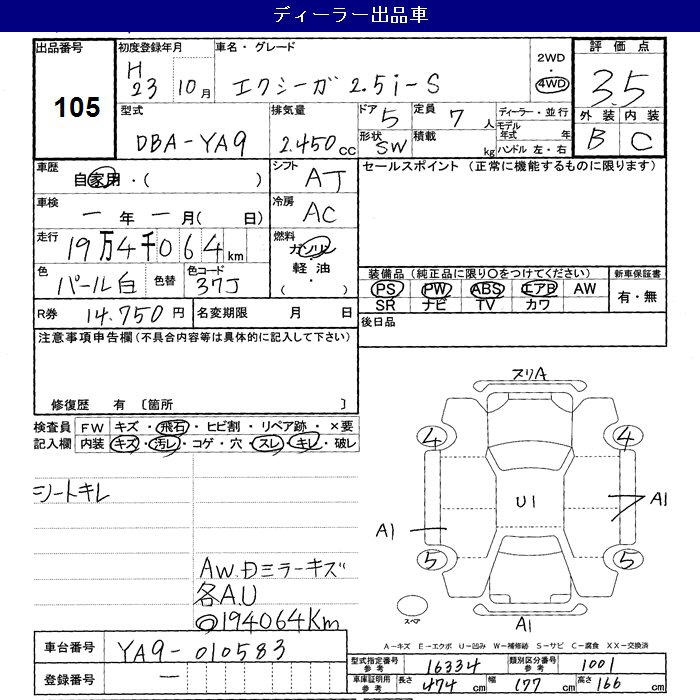 ディーラー出品車
出品番号 初度登録年月 車名・グレード 評価点
105
H 23 10月 エクシーガ 2.5i-S 2WD 4WD 3.5
型式 排気量 ドア 5 定員 7人 ディーラー・並行 外装 内装
DBA-YA9 2.450cc 形状 SW 積載 kg モデル年式 年 B C
ハンドル 左・右
車歴 自家用・( ) シフト AT セールスポイント (正常に機能するものに限ります)
車検 ー年ー月( 日) 冷房 AC
走行 19万4千064km 燃料 ガソリン
軽油
( ・ )
色 パール白 色替 色コード 37J
装備品 (純正品に限り○をつけてください) 新車保証書
PS PW ABS エアB AW 有・無
SR ナビ TV カワ
R券 14.750円 名変期限 月 日 後日品
注意事項申告欄 (不具合内容等は具体的に記入して下さい)
修復歴 有 [箇所 ]
検査員 FW キズ・飛石・ヒビ割・リペア跡・×要
記入欄 内装 キズ・汚レ・コゲ・穴・スレ・キレ・破レ
シートキレ
AW.Dミラーキズ
各A.U
◎194064Km
スリA
4 4
U1
A1 A1
5 5
スペア A1
A-キズ E-エクボ U-凹み W-補修跡 S-サビ C-腐食 XX-交換済
車台番号 YA9-010583
登録番号 ー
型式指定番号 参考 16334 類別区分番号 参考 1001
車庫証明用 参考 長さ 474cm 幅 177cm 高さ 166cm